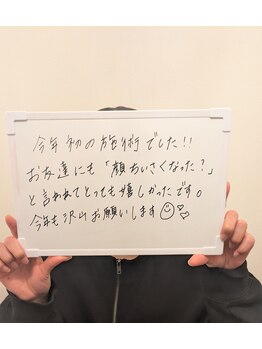 今年初の施術でした!!
お友達にも「顔ちいさくなった?」
と言われてとっても嬉しかったです。
今年も沢山お願いします